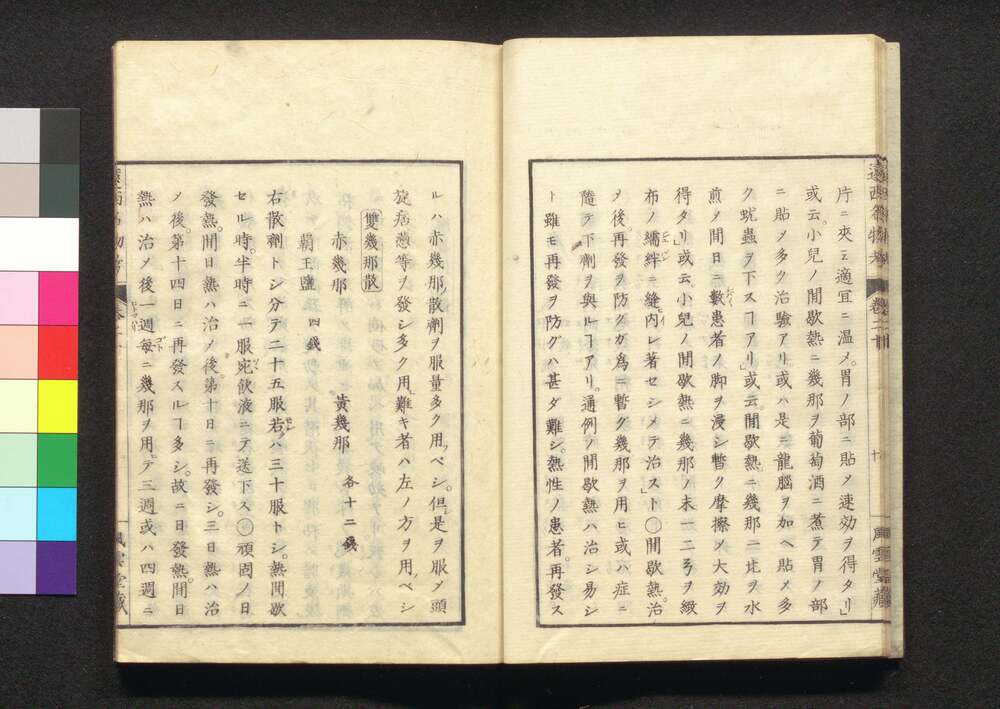 片ニ夾ミ適宜ニ溫メ。胃ノ部ニ貼メ速効ヲ得タリ」
或云。小兒ノ間歇熱ニ幾那ヲ葡萄酒ニ煮テ胃ノ部
ニ貼メ多ク治驗アリ或ハ是ニ龍腦ヲ加ヘ貼メ多
ク蚘蟲ヲ下スヿアリ」或云。間歇熱ニ幾那一 ヲ水
煎ノ間日ニ數患者ノ脚ヲ浸シ暫ク摩擦メ大効ヲ
得タリ」或云小兒ノ間歇熱ニ幾那ノ末一二 ヲ緻
布ノ襦絆ニ縫内レ著セシメテ治スト」○間歇熱。治
メ後。再發ヲ防グガ爲ニ暫ク幾那ヲ用ヒ或ハ症ニ
隨テ下劑ヲ與ルヿアリ。通例ノ間歇熱ハ治シ易シ
ト雖モ再發ヲ防グハ甚ダ難シ。熱性ノ患者。再發ス
ルハ赤幾那散劑ヲ服量多ク用ベシ。但是ヲ服メ頭
旋病 等ヲ發シ多ク用難キ者ハ左ノ方ヲ用ベシ
雙幾那散
赤幾那 黃幾那 各十二錢
覇王鹽 四錢
右散劑トシ分テ二十五服若ハ三十服トシ。熱間歇
セル時。半時ニ一服宛飲液ニテ送下ス○頑固ノ日
發熱。間日熱ハ治メ後。第十日ニ再發シ。三日熱ハ治
メ後。第十四日ニ再發スルヿ多シ。故ニ日發熱。間日
熱ハ治メ後一週每ニ幾那ヲ用テ三週或ハ四週ニ